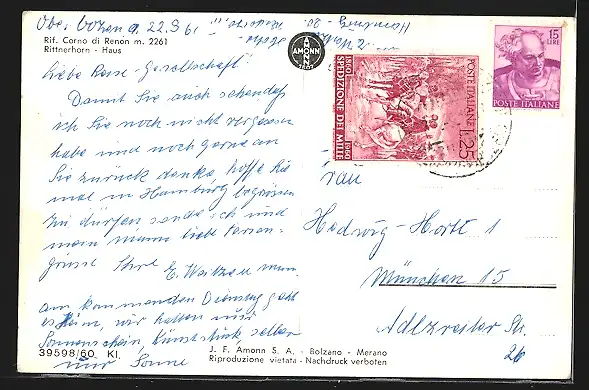 Oberbozen d. 22.9.61
Hamburg - 20.
Rif. Corno di Renon m. 2261
Rittnerhorn - Haus
AMONN
Liebe Reise-Gesellschaft
Damit Sie auch sehen daß
ich Sie noch nicht vergessen
habe und noch gerne an
Sie zurück denke, hoffe Sie
mal in Hamburg begrüssen
zu dürfen sende ich und
mein Mann liebe
grüsse Ihre E.
am kommenden Dienstag geht
es heim, wir hatten nur
Sonnenschein, Kunststück selber
nur Sonne
39598/60 Kl.
J. F. Amonn S. A. - Bolzano - Merano
Riproduzione vietata - Nachdruck verboten
1860 1960
SPEDIZIONE DEI MILLE
POSTE ITALIANE L.25
15 LIRE
POSTE ITALIANE
Frau
Hedwig
München 15
Adlzreiter Str.
26